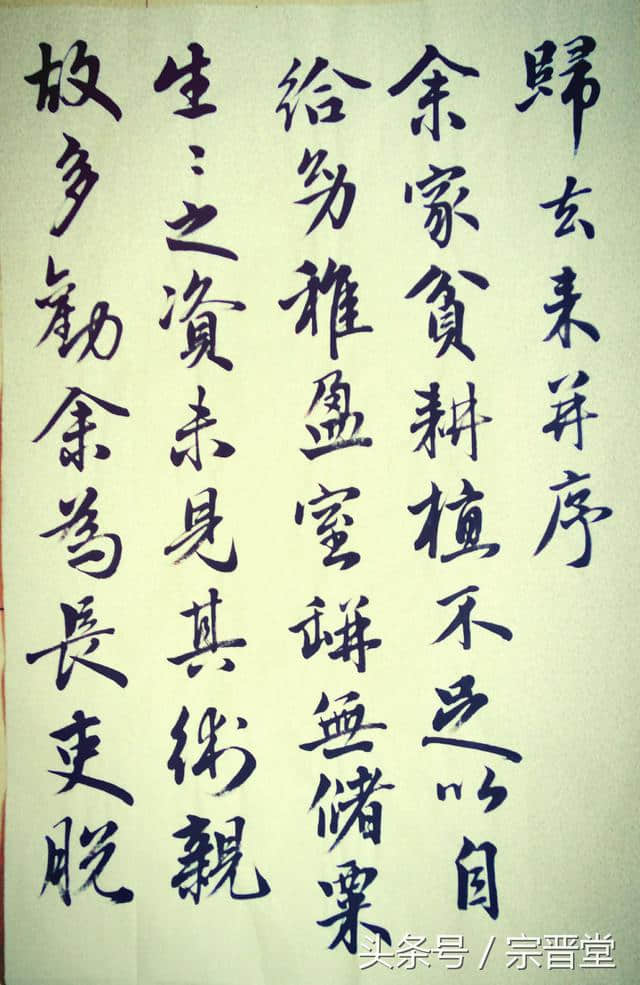 歸去来并序
余家貧耕植不足以自
給幼稚盈室缾無儲粟
生〻之資未見其術親
故多勸余為長吏脱
头条号 / 宗晋堂